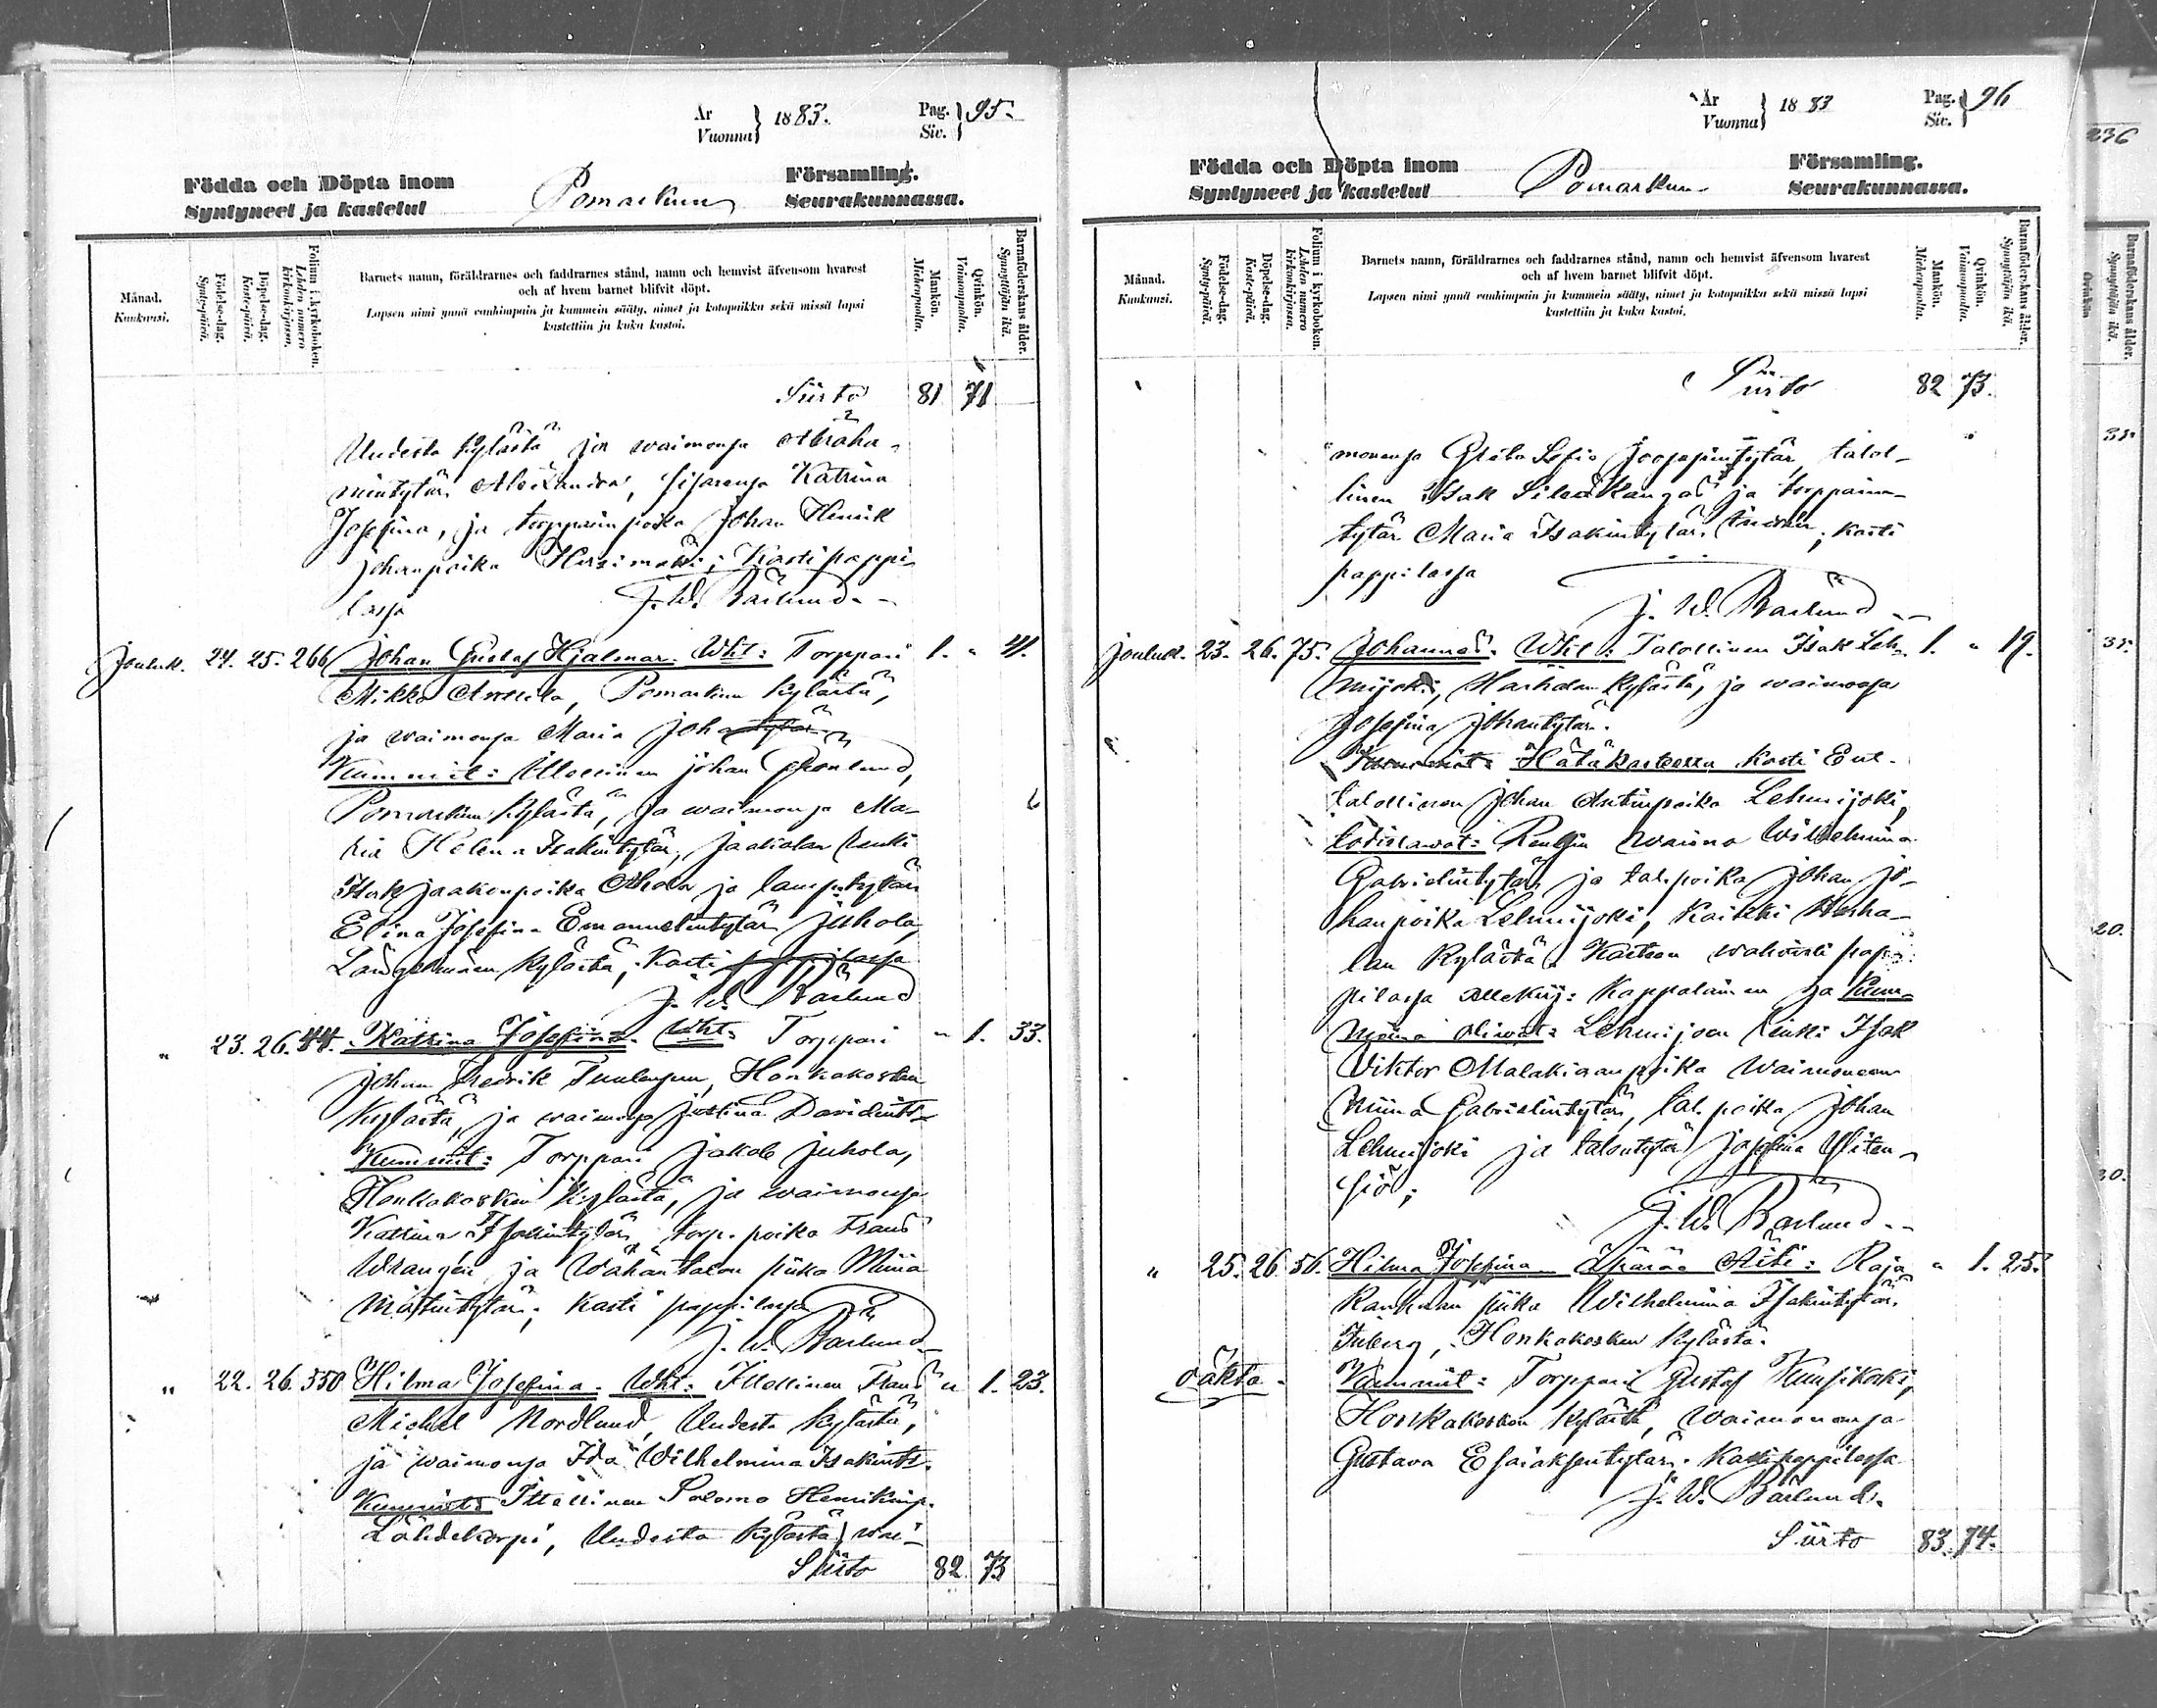 År Vuonna } 1883. Pag. Siv. } 95.
Födda och Döpta inom Pomarkun Församling.
Syntyneet ja kastetut Seurakunnassa.
Månad. Kuukausi.
Födelse-dag. Synty-päivä.
Döpelse-dag. Kaste-päivä.
Folium i kyrkoboken. Lehden numero kirkonkirjassa.
Barnets namn, föräldrarnes och faddrarnes stånd, namn och hemvist äfvensom hvarest
och af hvem barnet blifvit döpt.
Lapsen nimi ynnä vanhimpain ja kummein sääty, nimet ja kotopaikka sekä missä lapsi
kastettiin ja kuka kastoi.
Mankön. Miehenpuolta.
Qvinkön. Vaimonpuolta.
Barnaföderskans ålder. Synnyttäjän ikä.
Siirto 81 71
Uudesta kylästä ja waimonsa Abraha-
mintytär Alexandra, sisarensa Katrina
Josefina, ja torpparinpoika Johan Henrik
Johanpoika ; Kasti pappi-
lassa J. W. Bärlund.
Jouluk. 24. 25. 266 Johan Gustaf Hjalmar. Wht: Torppari 1. " 41.
Mikko Anttila, Pomarkun kylästä,
ja waimonsa Maria Johantytär
Kummit: Itsellinen Johan Grönlund,
Pomarkun kylästä, ja waimonsa Ma-
ria Helena Isakintytär, renki
Isak Jaakonpoika Ahola ja tytär
Elina Josefina Emanuelintytär Juhola,
Längelmäen kylästä; Kasti pappilassa
J. W. Bärlund
" 23. 26. 44. Katrina Josefina. Wht: Torppari " 1. 33.
Johan Fredrik Tuulensuu, Honkakosken
kylästä, ja waimonsa Justina Davidints.
Kummit: Torppari Jakob Juhola,
Honkakosken kylästä, ja waimonsa
Katrina torp. poika Frans
Wrangén ja Wähäntalon piika Miina
Matintytär; kasti pappilassa
J. W. Bärlund
" 22. 26. 350 Hilma Josefina. Wht: Itsellinen Frans " 1. 23.
Michel Nordlund, Uudesta kylästä,
ja waimonsa Ida Wilhelmina Isakints.
Kummit: Itsellinen Salomo Henrikinp.
Lähdekorpi, Uudesta kylästä, wai-
Siirto 82 73
År Vuonna } 1883 Pag. Siv. } 96
Födda och Döpta inom Pomarkun Församling.
Syntyneet ja kastetut Seurakunnassa.
Månad. Kuukausi.
Födelse-dag. Synty-päivä.
Döpelse-dag. Kaste-päivä.
Folium i kyrkoboken. Lehden numero kirkonkirjassa.
Barnets namn, föräldrarnes och faddrarnes stånd, namn och hemvist äfvensom hvarest
och af hvem barnet blifvit döpt.
Lapsen nimi ynnä vanhimpain ja kummein sääty, nimet ja kotopaikka sekä missä lapsi
kastettiin ja kuka kastoi.
Mankön. Miehenpuolta.
Qvinkön. Vaimonpuolta.
Barnaföderskans ålder. Synnyttäjän ikä.
Siirto 82 73.
monensa Greta Sofia Joosepintytär, talol-
linen Isak Sileäkangas ja torpparin-
tytär Maria Isakintytär ; kasti
pappilassa
J. W. Bärlund
Jouluk. 23. 26. 75. Johannes. Wht: Talollinen Isak Leh- 1. " 19.
mijoki, Harhalan kylästä, ja waimonsa
Josefina Johantytär.
Kummit: Hätäkasteessa kasti Ent.
talollinen Johan Antinpoika Lehmijoki,
todistawat: Rengin waimo Wilhelmina
Gabrielintytär ja tal. poika Johan Jo-
hanpoika Lehmijoki, kaikki Harha-
lan kylästä. Kasteen wahwisti pap-
pilassa allekirj: Kappalainen ja Kum-
meina oliwat: Lehmijoen renki Isak
Viktor Malakiaanpoika waimoneen
Miina Gabrielintytär, tal. poika Johan
Lehmijoki ja talontytär Josefina
J. W. Bärlund
" 25. 26. 56. Hilma Josefina Äpärä Äiti: Raja " 1. 25.
piika Wilhelmina Isakintytär
Honkakosken kylästä.
Kummit: Torppari Gustaf Kuusikoski,
Honkakosken kylästä, waimonensa
Gustava Esaiaksentytär. Kasti pappilassa
J. W. Bärlund.
Siirto 83. 74.
236
Barnaföderskans ålder.
Synnyttäjän ikä.
20.
30.